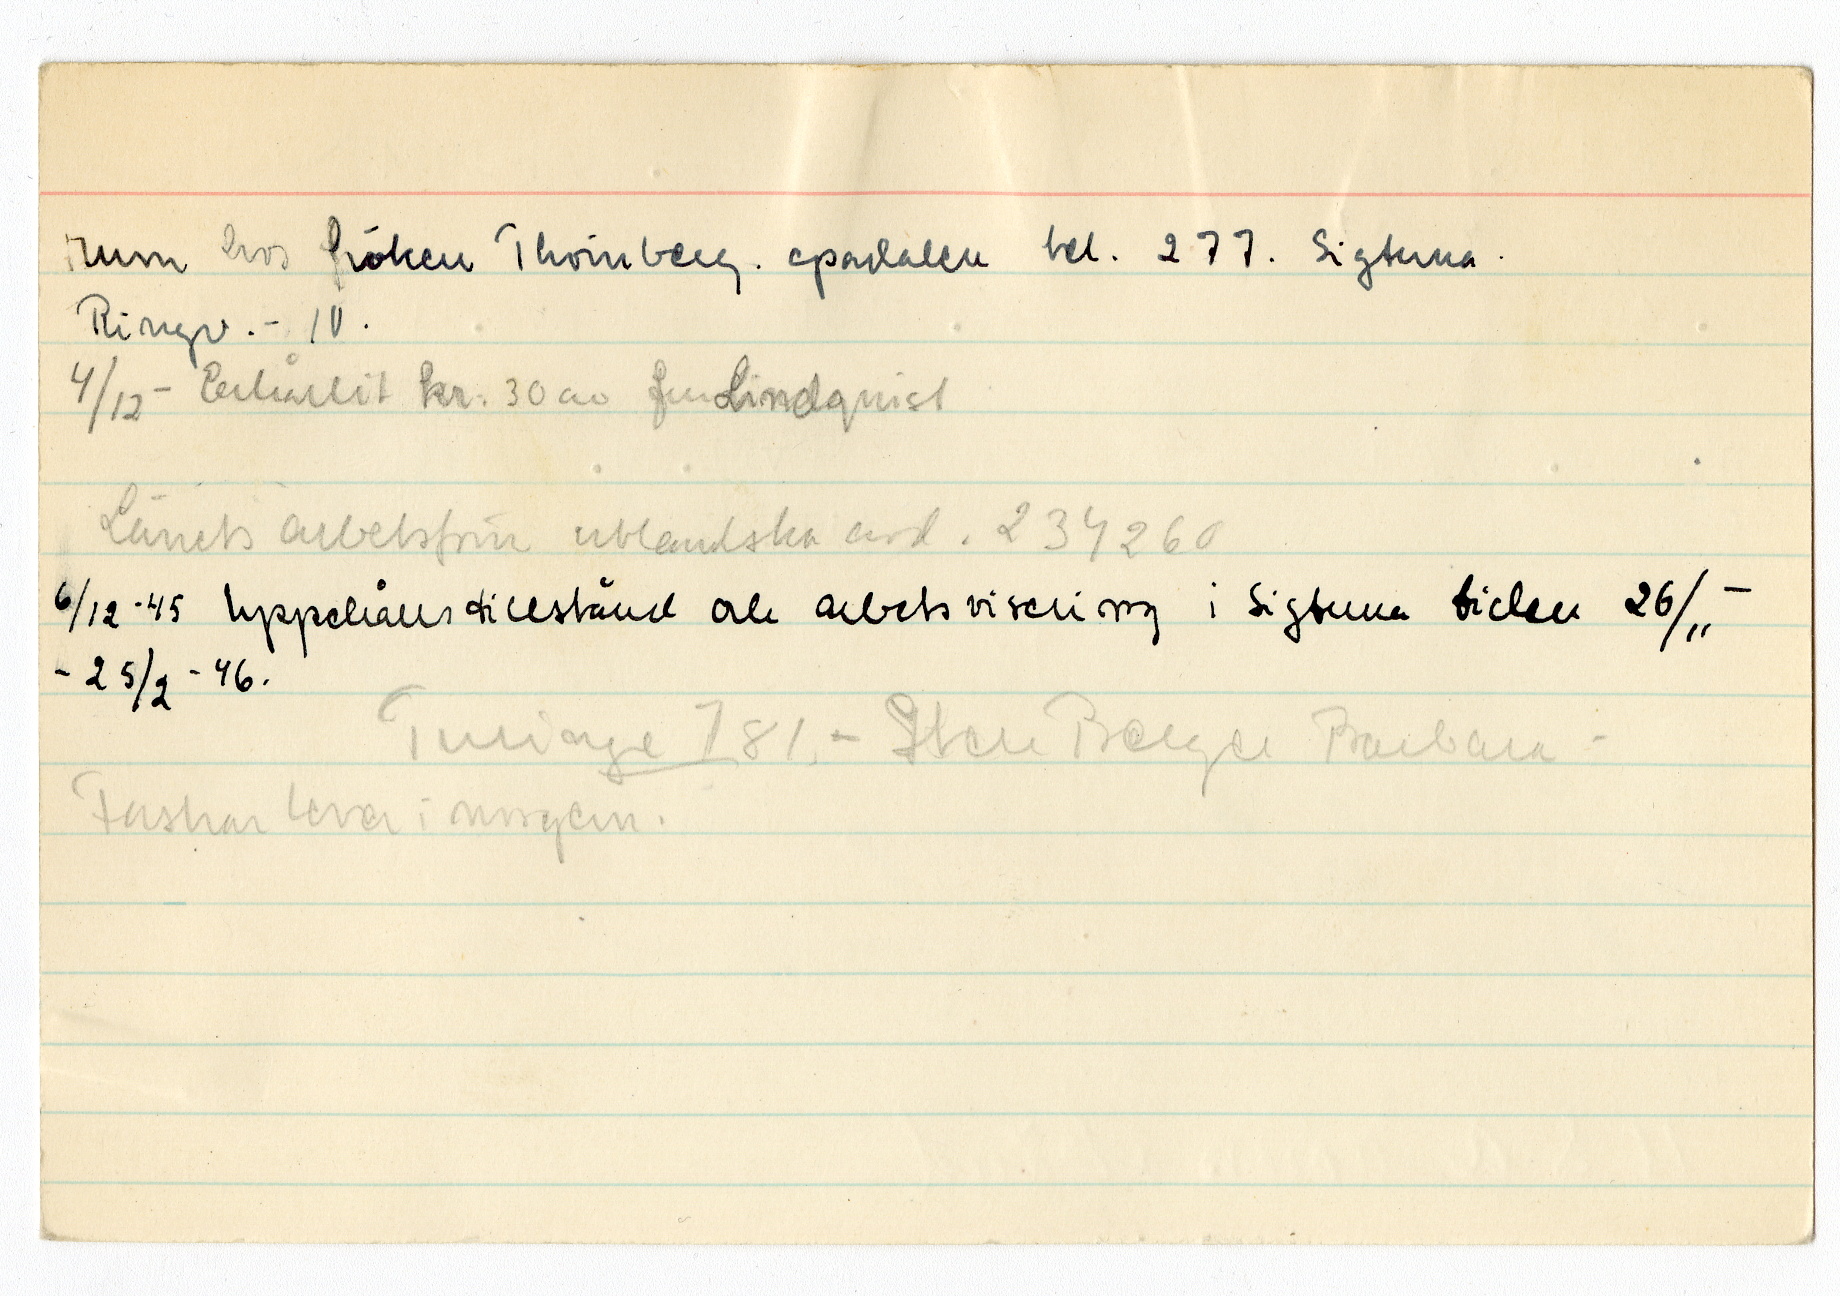 rum hos fröken Thörnberg. apartalen tel. 277. Sigtuna.
Ringv. - 10.
4/12 - Erhållit kr. 30 av fru Lindquist
Länets arbetsförm utländska avd. 234260
6/12 -45 Uppehållstillstånd och arbetsvisering i Sigtuna tiden 26/11 -
- 25/2 -46.
Turinge 181. - Sten Berger Barbara -
Tushar lever i morgon.